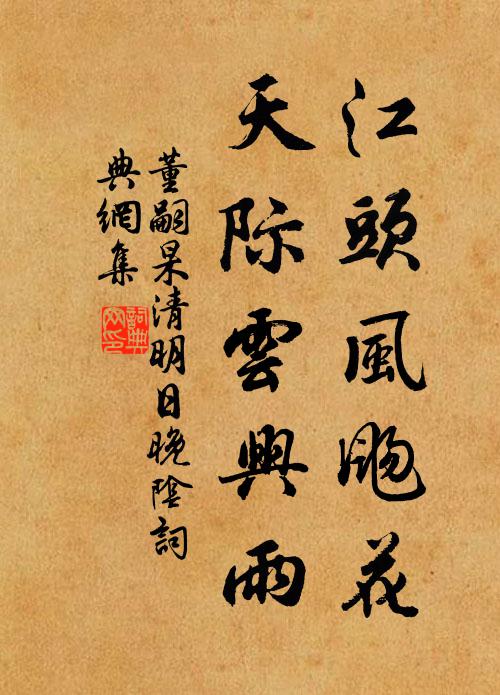 江頭風颺花
天际雲興雨
董嗣杲清明日晚陰詞
典網集
詞典網印